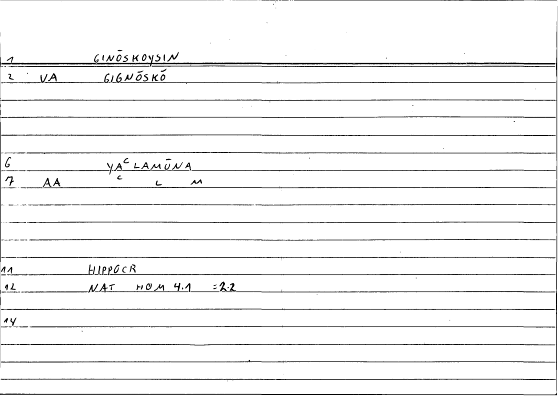 1 GINŌSKOYSIN
2 VA GIGNŌSKŌ
6 YAᶜLAMŪNA
7 AA ᶜ L M
11 HIPPOCR
12 NAT HOM 4.1 =2.2
14